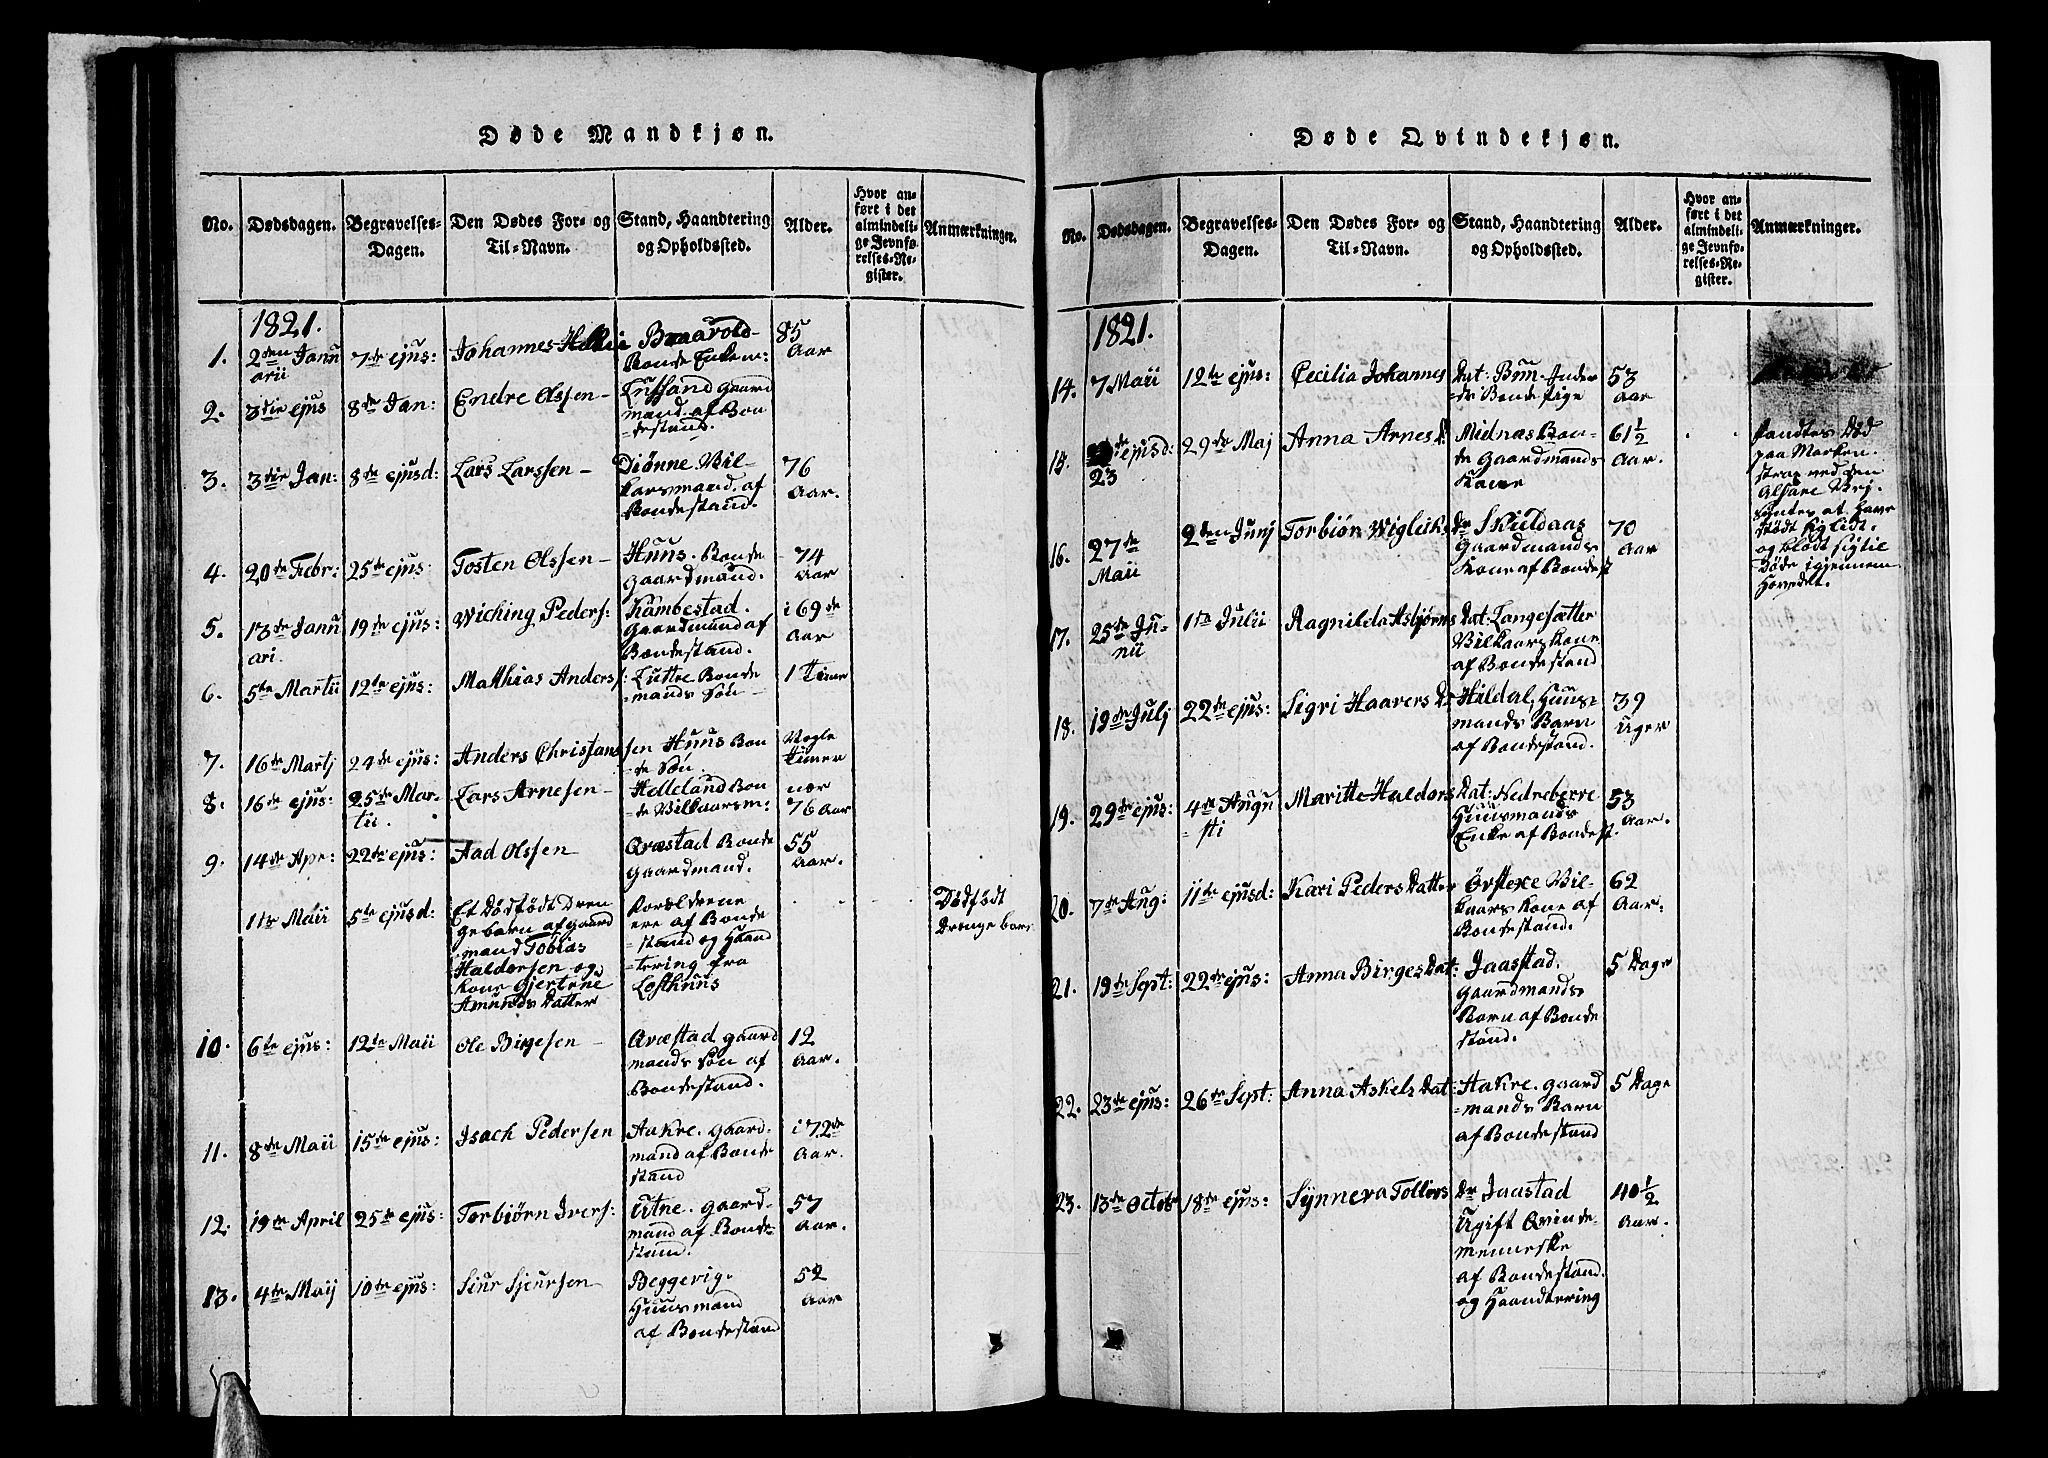 Døde Mandkjøn.
No.
Dødsdagen.
Begravelses-
Dagen.
Den Dødes For- og
Til-Navn.
Stand, Haandtering
og Opholdssted.
Alder.
Hvor an-
ført i det
almindeli-
ge Jevnfø-
relses-Re-
gister.
Anmærkninger.
1821.
1.
2den Janu
arii
7de ejus:
Johannes
Bonde Enkem:
85
Aar
2.
3die ejus
8de Jan:
Endre Olssen
gaard
mand af Bon
=destand.
3.
3die Jan:
8de ejusd:
Lars Larssen
Diønne Vil-
karsmand af
Bondestand.
76
Aar.
4.
20de Febr:
25de ejus:
Tosten Olssen
Huus. Bonde
gaardmand.
74
Aar
5.
13de Janu
ari.
19de ejus:
Wiching Peders:
Kambestad.
Gaardmand af
Bondestand.
i 69de
Aar
6.
5te Martii
12te ejus:
Mathias Anders:
Luttre Bonde
=mands Søn
1 Time
7.
16de Martj
24de ejus:
Anders Christians
sen Huus Bon
=de Søn.
Nogle
Timer
8.
16de ejus:
25de Mar-
tii.
Lars Arnesen
Helleland Bon
=de Vilkaarsm=
nær
76 Aar
9.
14de Apr:
22de ejus:
Aad Olssen
Qræstad Bonde
gaardmand.
55
Aar.
1ste Maii
5te ejusd:
Et Dødfødt Dren
gebarn af gaard
mand Tobias
Haldorsen og
Kone Gjertene
Amunds Datter
Forældrene
ere af Bonde
=stand og Haand
=tering fra
Lofthuus
Dødfødt
Drenge barn
10.
6te ejus:
12te Maii
Ole Birgesen
Qræstad gaard
mands Søn af
Bondestand.
12
Aar.
11.
8de Maii
15de ejus:
Isach Pedersen
Aakre. gaard-
mand af Bonde
stand
i 72de
Aar.
12.
19de April
25de ejus:
Torbiørn Ivers:
Utne. gaard-
mand af Bonde-
stand.
57
Aar.
13.
4de Maij
10de ejus:
Siur Sjeursen
Beggevig.
Huusmand
af Bondestand
52
Aar
Døde Qvindekjøn.
No.
Dødsdagen.
Begravelses-
Dagen.
Den Dødes For- og
Til-Navn.
Stand, Haandtering
og Opholdssted.
Alder.
Hvor an-
ført i det
almindeli-
ge Jevnfø-
relses-Re-
gister.
Anmærkninger.
1821.
14.
7 Maii
12te ejus:
Cecilia Johannes
Dat:
Bonde Pige
53
Aar
15.
de ejusd:
23
29de Maj
Anna Arnes D:
Midnæs Bon-
de Gaardmands
Kone
61½
Aar.
fandtes Død
paa Marken
strax ved den
Alfare Vej.
syntes at have
stødt sig lidt.
og blødt sig til
Døde igjennem
Hovedet.
16.
27de
Maii
2den Junj
Torbiør Wigleiks
Dr Skieldaas
Gaardmands
Kone af Bondest
70
Aar
17.
25de Ju-
nii
1ste Julii
Ragnilda Asbjørns
Dat: Langesætter
Vilkaars Kone
af Bondestand
18.
19de Julj
22de ejus:
Sigri Haavers Dr
Hildal, Huus-
mands Barn
af Bondestand.
39
Uger
19.
29de ejus:
4de Augu
=sti
Maritte Haldors
Dat: Nedreberre
Huusmands
Enke af Bondest.
53
Aar.
20.
7de Aug:
11te ejusd:
Kari Peders Datter
Øvstexe Vil-
kaars Kone af
Bondestand.
62
Aar.
21.
19de Sept:
22de ejus:
Anna Birges Dat:
Jaastad.
Gaardmands
Barn af Bonde
stand.
5 Dage
22.
23de ejus:
26de Sept:
Anna Askels Dat:
Hakre. gaard
=mands Barn
af Bondestand
5 Dage
23.
13de Octob
18de ejus:
Synneva Tollevs
Dr Jaastad
Ugift Qvinde-
menneske
af Bondestand.
og Haandtering
40½
Aar.